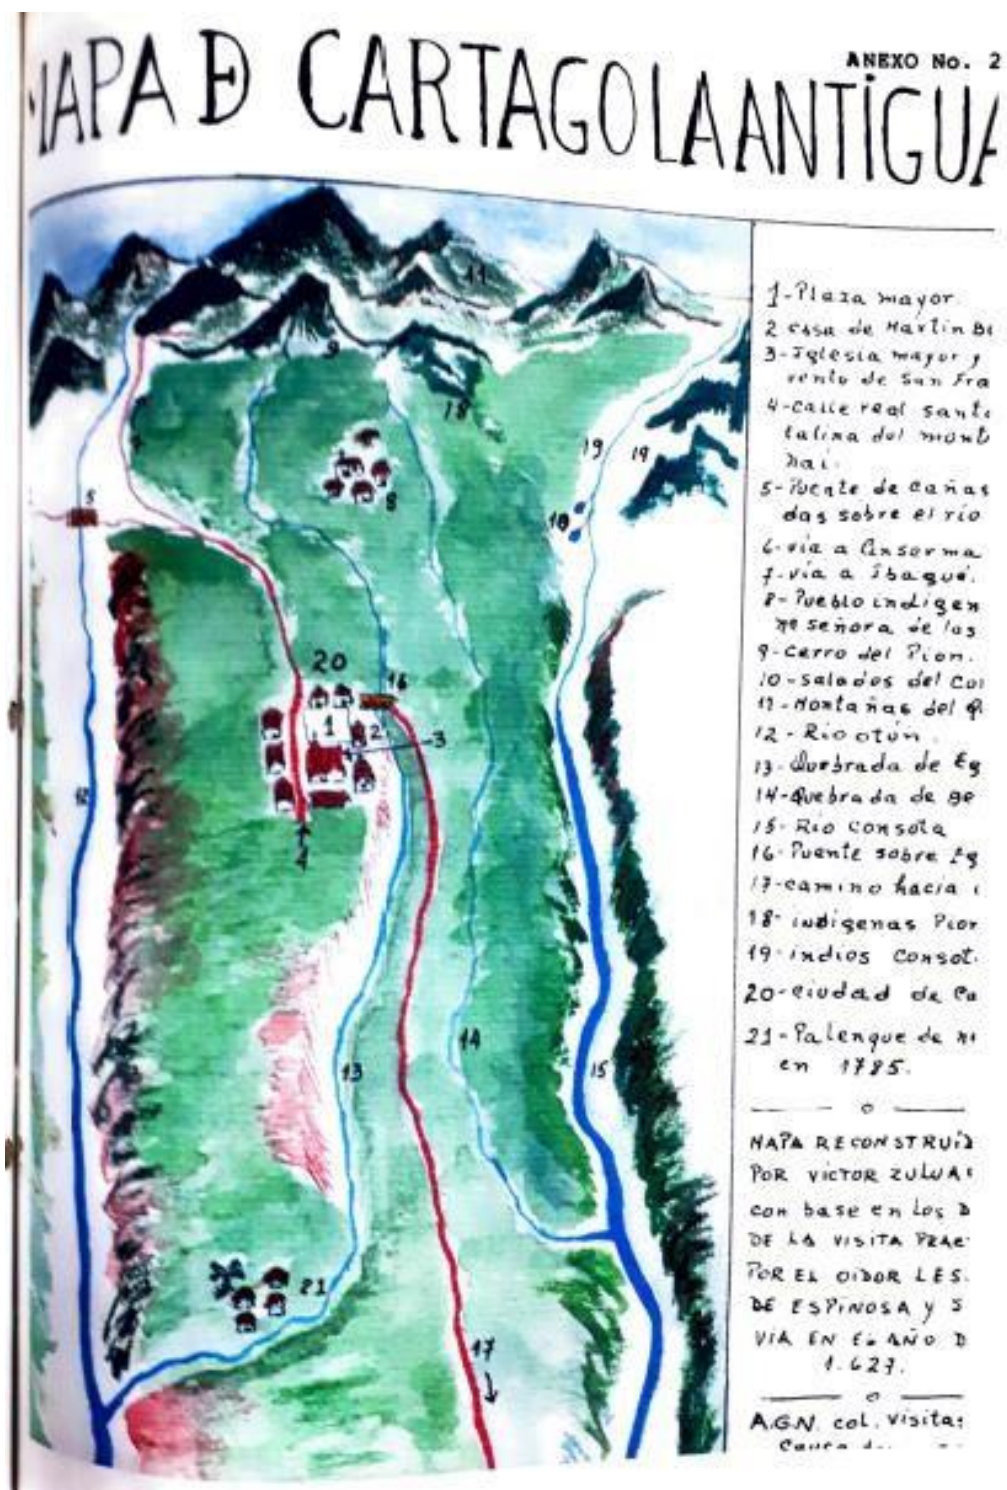 ANEXO No. 2
MAPA DE CARTAGO LA ANTIGUA
1-Plaza mayor
2 casa de Martin Bu
3-Iglesia mayor y
vento de San Fra
4-calle real santa
talina del mont
nai.
5-Puente de cañas
das sobre el río
6-via a Anserma
7-via a Ibagué.
8-Pueblo indigen
ne señora de las
9-Cerro del Pion.
10-Salados del Con
11-Montañas del Q
12-Rio otún.
13-Quebrada de Eg
14-Quebrada de ge
15-Rio Consota
16-Puente sobre Eg
17-camino hacia
18-indigenas Pior
19-indios Consot
20-ciudad de Ca
21-Palenque de
en 1785.
MAPA RECONSTRUÍD
POR VICTOR ZULUA
con base en Los D
DE LA VISITA PRAC
POR EL OIDOR LES
DE ESPINOSA Y S
VIA EN EL AÑO D
1.627.
A.G.N. col. Visitas
Cauca
11
9
18
19
19
8
5
10
20
16
1
2
3
12
4
13
14
15
21
17